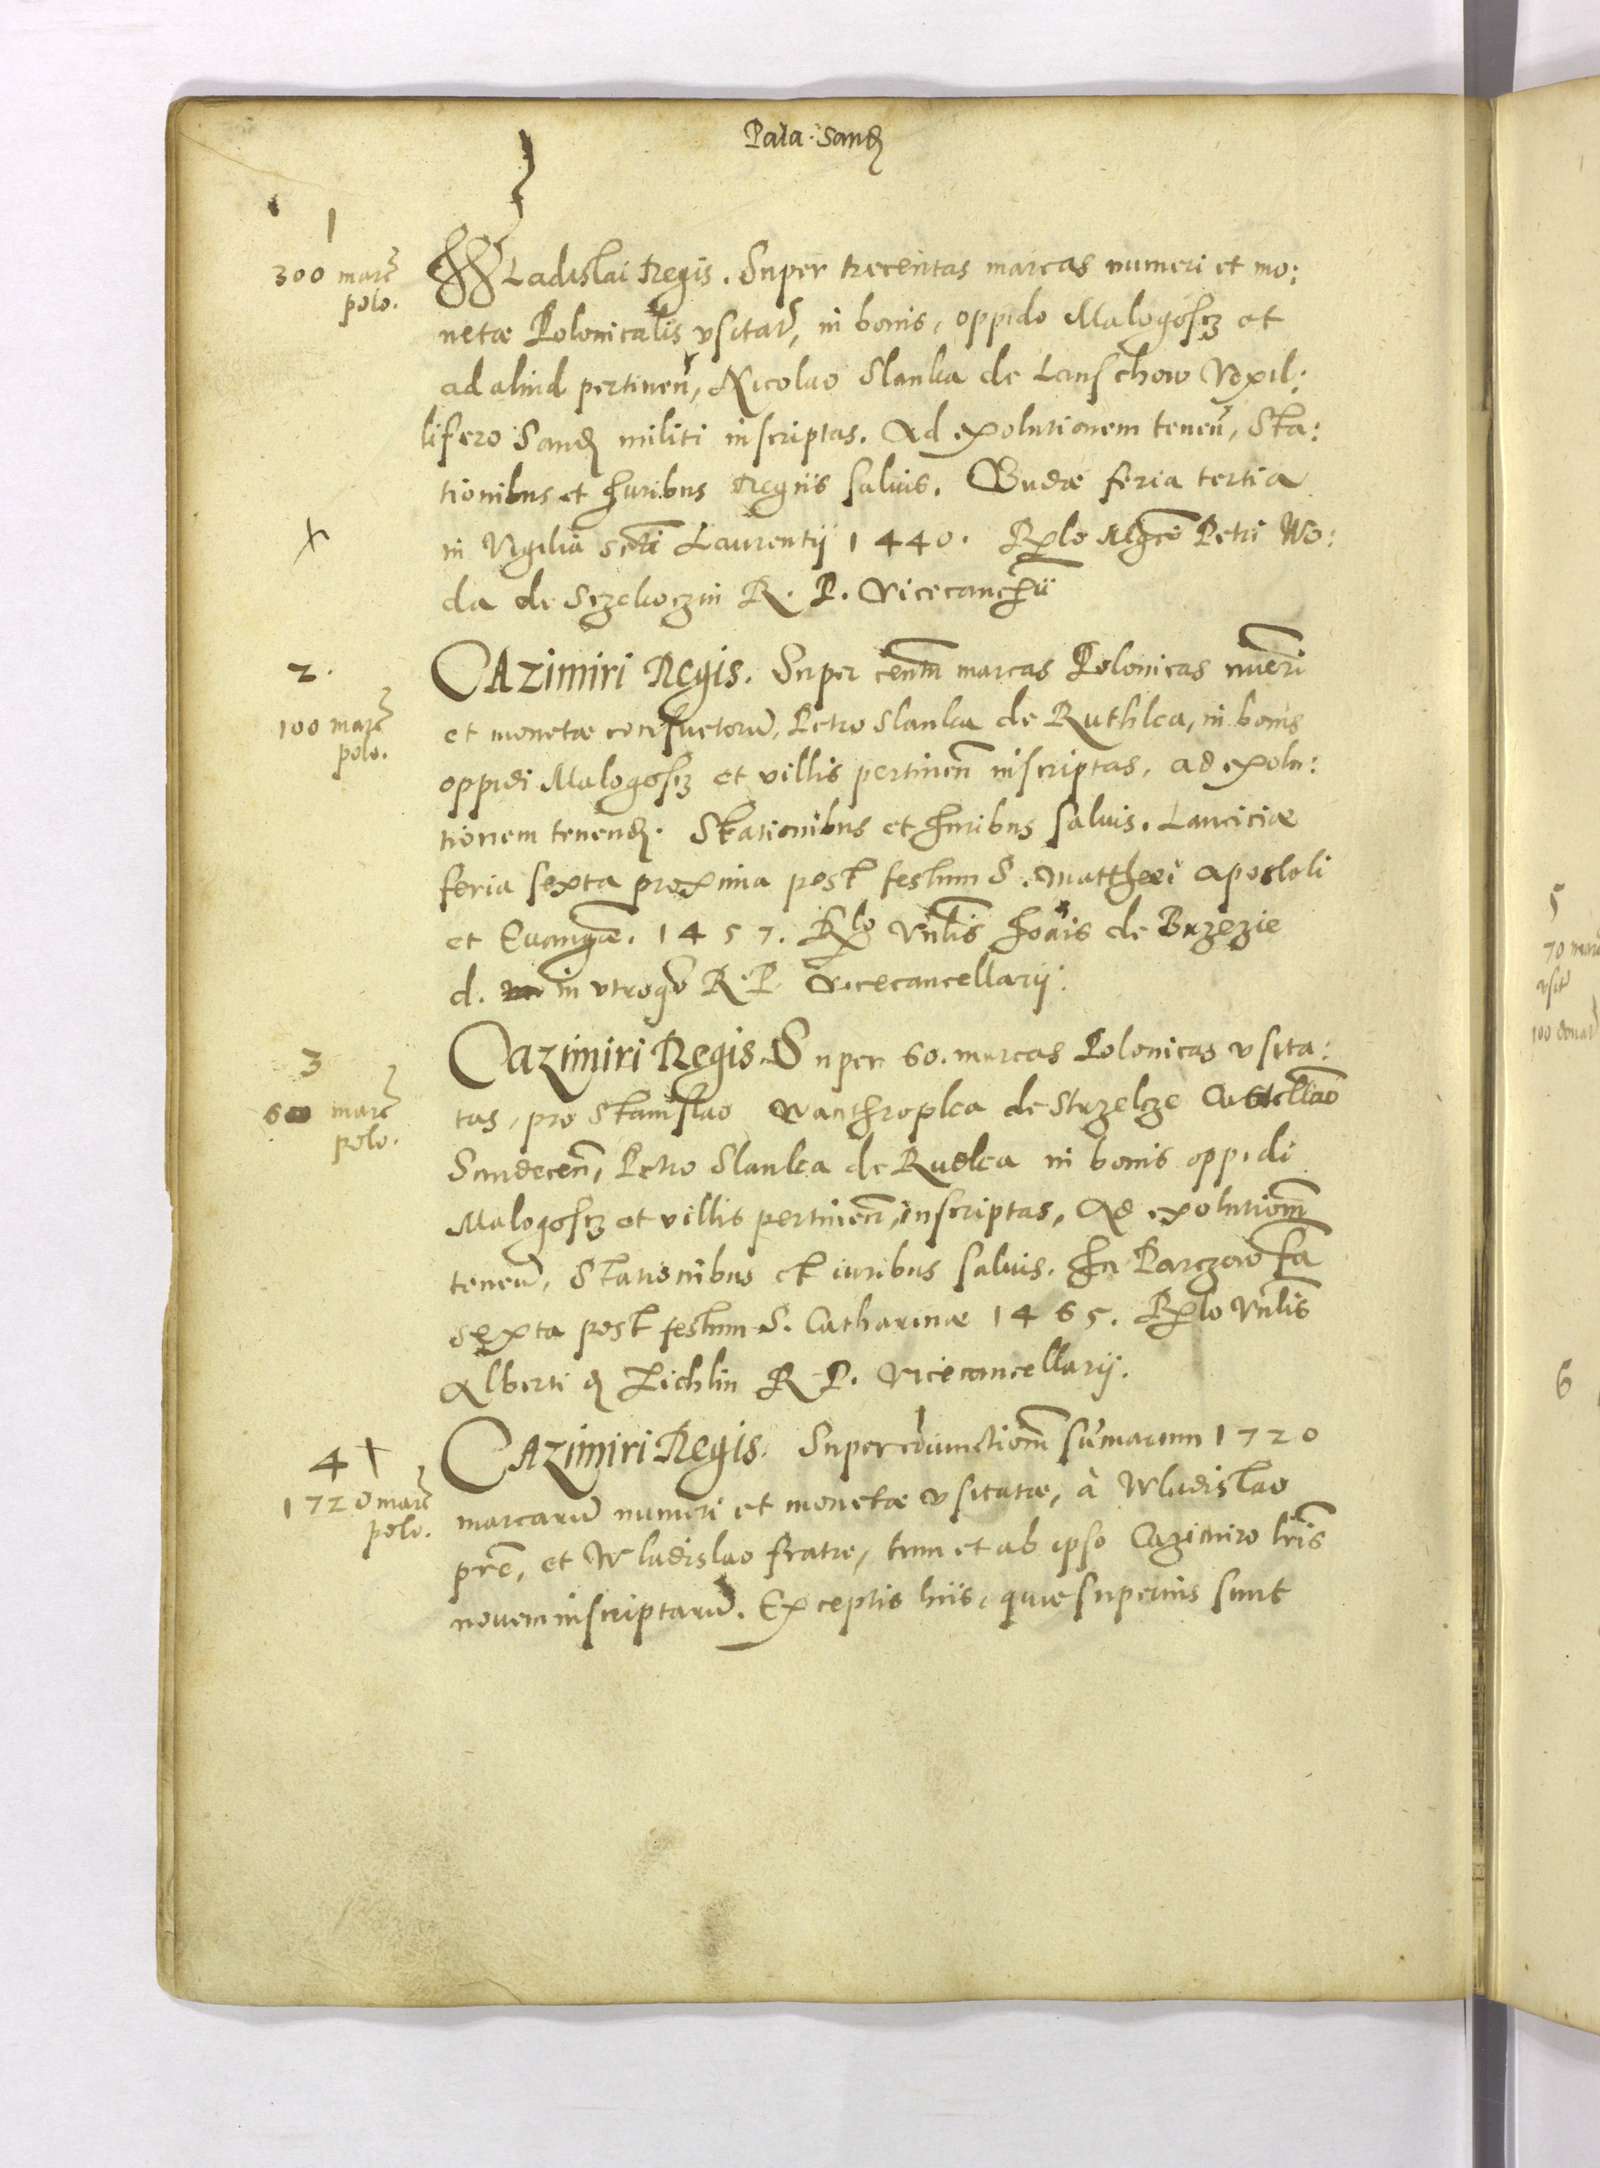 Pala. Sand
1
300 marc
polo.
WLadislai Regis. Super trecentas marcas numeri et mo:
netæ Polonicalis vsitar, in bonis, oppido Malogoscz et
ad aliud pertinen, Nicolao Slanka de Lanschow Vexil:
lifero Sand militi inscriptas. Ad exolutionem tenen, Sta:
tionibus et Iuribus Regiis saluis. Budæ feria tertia
in Vigilia scti Laurentij 1440. Rlo Mgce Petri Wo:
da de Sczekoczin R. P. Vicecancrii
2.
100 marc
polo.
CAzimiri Regis. Super centm marcas Polonicas nueri
et monetæ consuetoru, Petro Slanka de Ruthka, in bonis
oppidi Malogoscz et villis pertinen inscriptas, ad exolu:
tionem tenend. Stationibus et Iuribus saluis. Lanciciæ
feria sexta proxima post festum S. Matthæi Apostoli
et Euangæ. 1457. Rlo Vnlis Ioais de Brzezie
d. in vtroq R. P. Vicecancellarij.
3
60 marc
polo.
CAzimiri Regis. Super 60. marcas Polonicas vsita:
tas, pro Stanislao Wanthropka de Strzelcze Castellao
Sandecen, Petro Slanka de Rudka in bonis oppidi
Malogoscz et villis pertinen, inscriptas, Ad exolutiom
tenen, Stationibus et iuribus saluis. In Parczow fa
sexta post festum S. Catharinæ 1465. Rlo Vnlis
Alberti d Zichlin R. P. Vicecancellarij.
4
1720 marc
polo.
CAzimiri Regis. Super coiunctiom sumarum 1720
marcaru numeri et monetæ vsitatæ, à Wladislao
pre, et Wladislao fratre, tum et ab ipso Cazimiro lris
novem inscriptaru. Exceptis hiis, quæ superius sunt
5
6